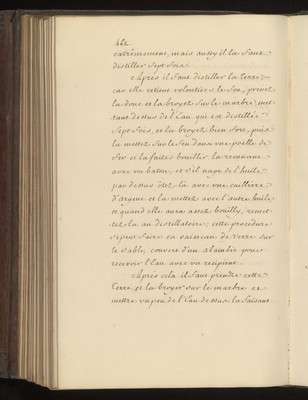 422.
extrémement, mais aussy il la faut
distiller sept fois.
Après il faut distiller la terre,
car elle retient volontiers le feu, prenez
la donc et la broyez sur le marbre, met-
tant dessus de l'Eau qui est distillée
sept fois, et la broyez bien fort, puis
la mettez sur le feu dans une poelle de
fer et la faites bouillir la remuant
avec un baton, et s'il nage de l'huile
par dessus ôtez là avec une cuilliere
d'argent et la mettez avec l'autre huile,
et quand elle aura assez bouilly, remet-
tez la au distillatoire; cette procedure
se peut faire en vaisseau de verre sur
le sable, couvert d'un alambic pour
recevoir l'Eau avec un recipient.
Après cela il faut prendre cette
Terre, et la broyer sur le marbre et
mettre un peu de l'Eau dessus la faisant